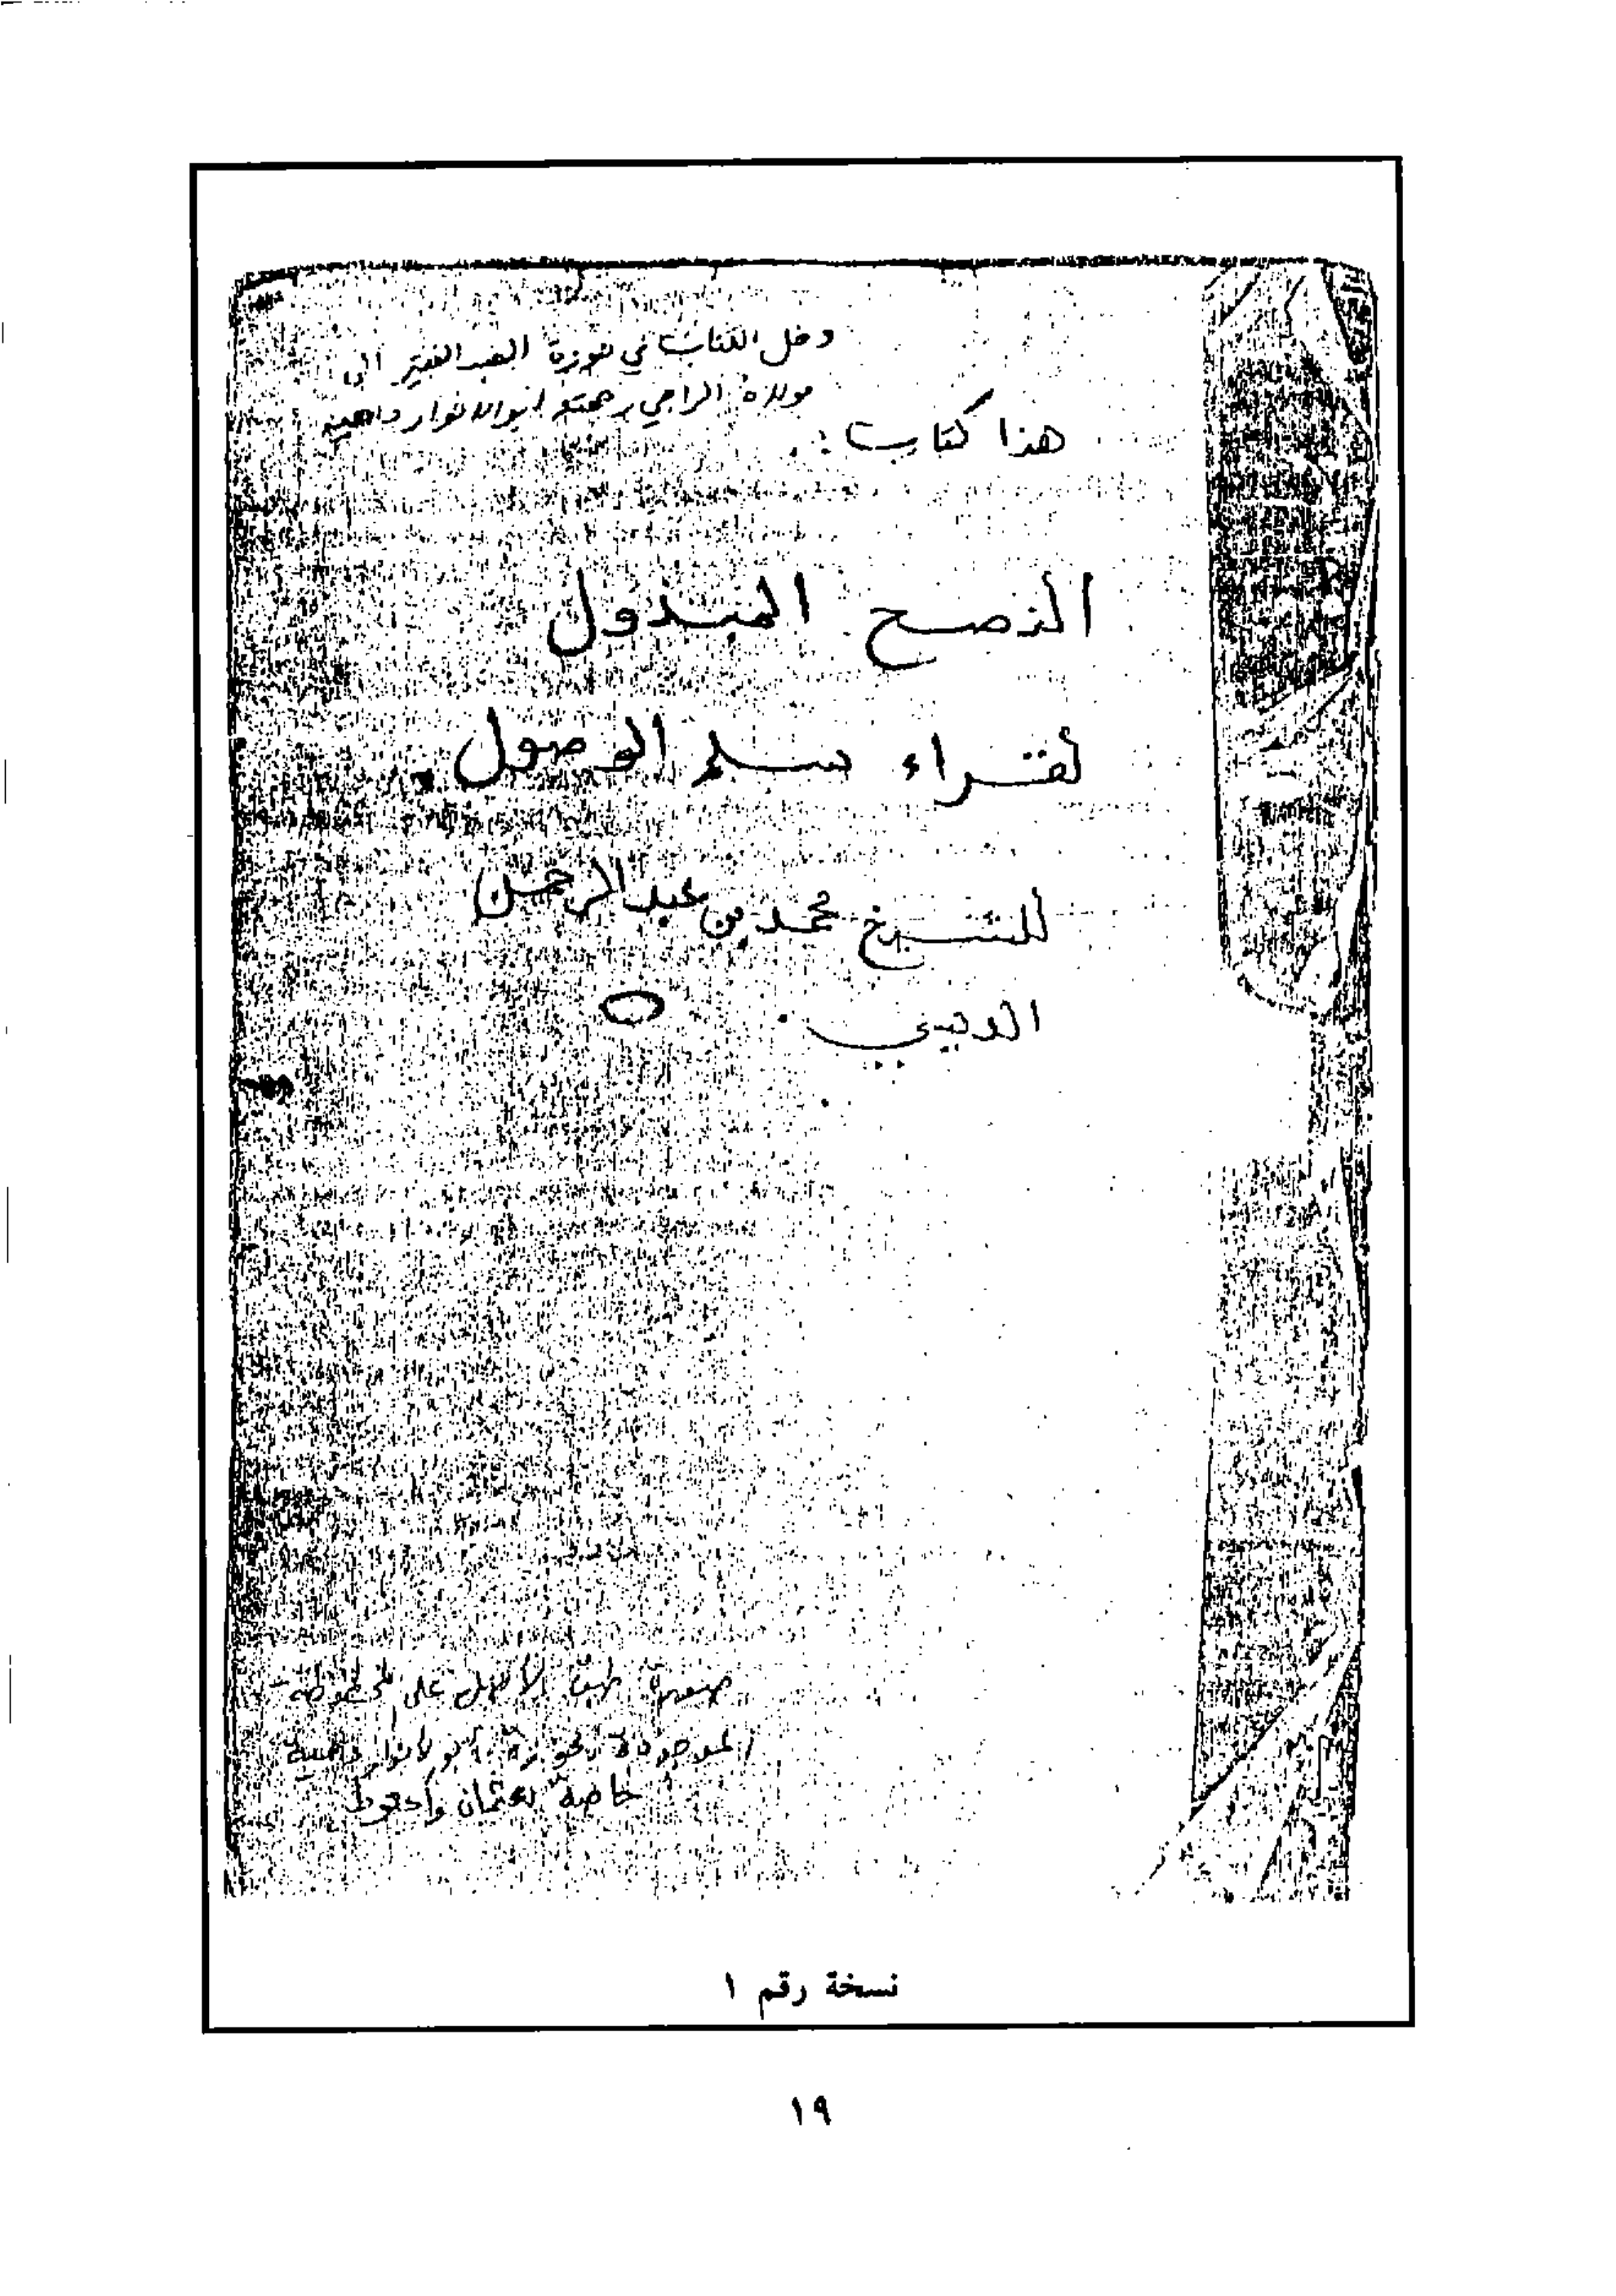 دخل الكتاب في حوزة العبد الفقير الى
مولاه الراجي رحمته ابوالانوار دحية
هذا كتاب :
النصح المبذول
لقراء سلم الوصول
للشيخ محمد بن عبد الرحمن
الديسي
الأصل على المخطوطة
الموجودة بحوزة ابو الانوار دحية
خاصة بعثمان
نسخة رقم ١
١٩